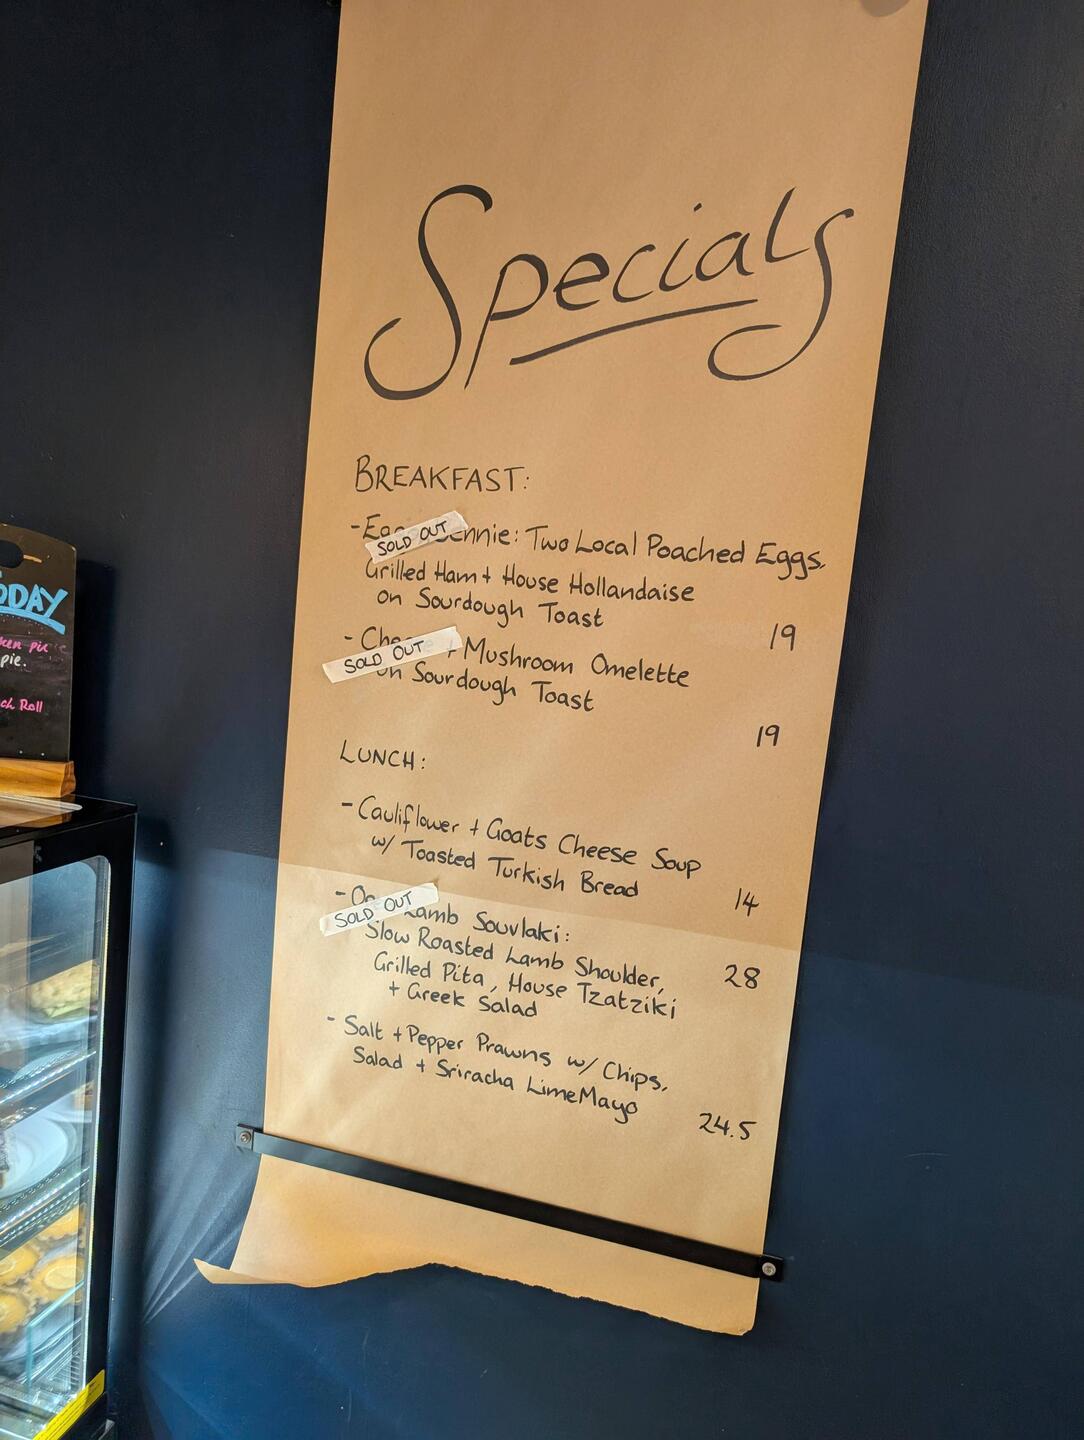 Specials
BREAKFAST:
- SOLD OUT : Two Local Poached Eggs,
Grilled Ham + House Hollandaise
on Sourdough Toast
19
- SOLD OUT + Mushroom Omelette
on Sourdough Toast
19
LUNCH:
- Cauliflower + Goats Cheese Soup
w/ Toasted Turkish Bread
14
- SOLD OUT Lamb Souvlaki:
Slow Roasted Lamb Shoulder,
28
Grilled Pita, House Tzatziki
+ Greek Salad
- Salt + Pepper Prawns w/ Chips,
Salad + Sriracha Lime Mayo
24.5
pie
pie.
Roll